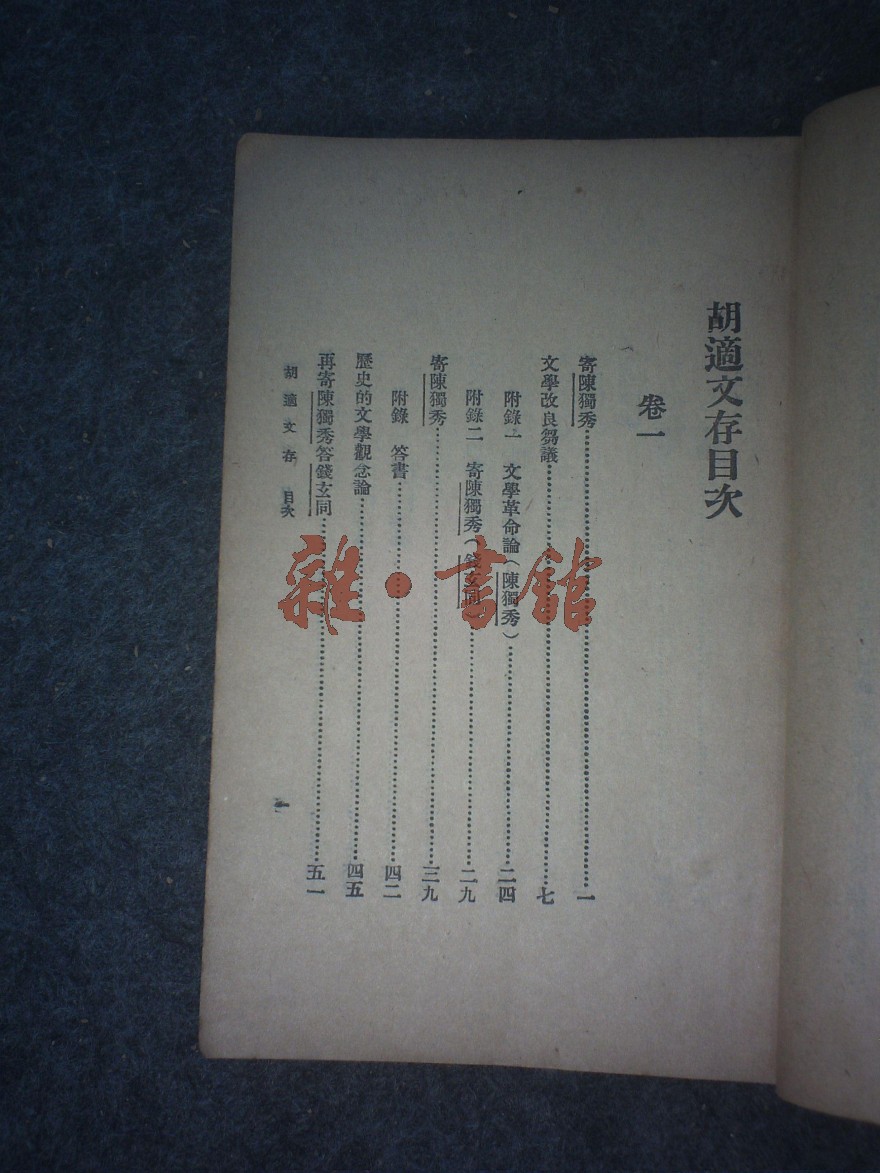 胡適文存目次
卷一
寄陳獨秀……一
文學改良芻議……七
附錄一 文學革命論(陳獨秀)……二四
附錄二 寄陳獨秀(錢玄同)……二九
寄陳獨秀……三九
附錄 答書……四二
歷史的文學觀念論……四五
再寄陳獨秀答錢玄同……五一
胡適文存 目次
一
雜·書館